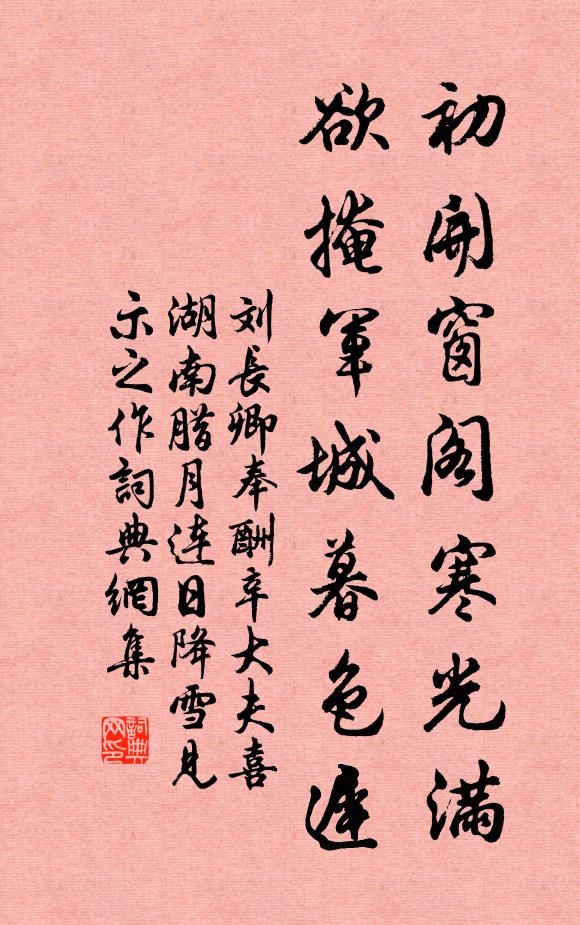 初開窗阁寒光滿
欲掩軍城暮色遲
刘長卿奉酬辛大夫喜
湖南腊月连日降雪見
示之作詞典網集
詞典网印